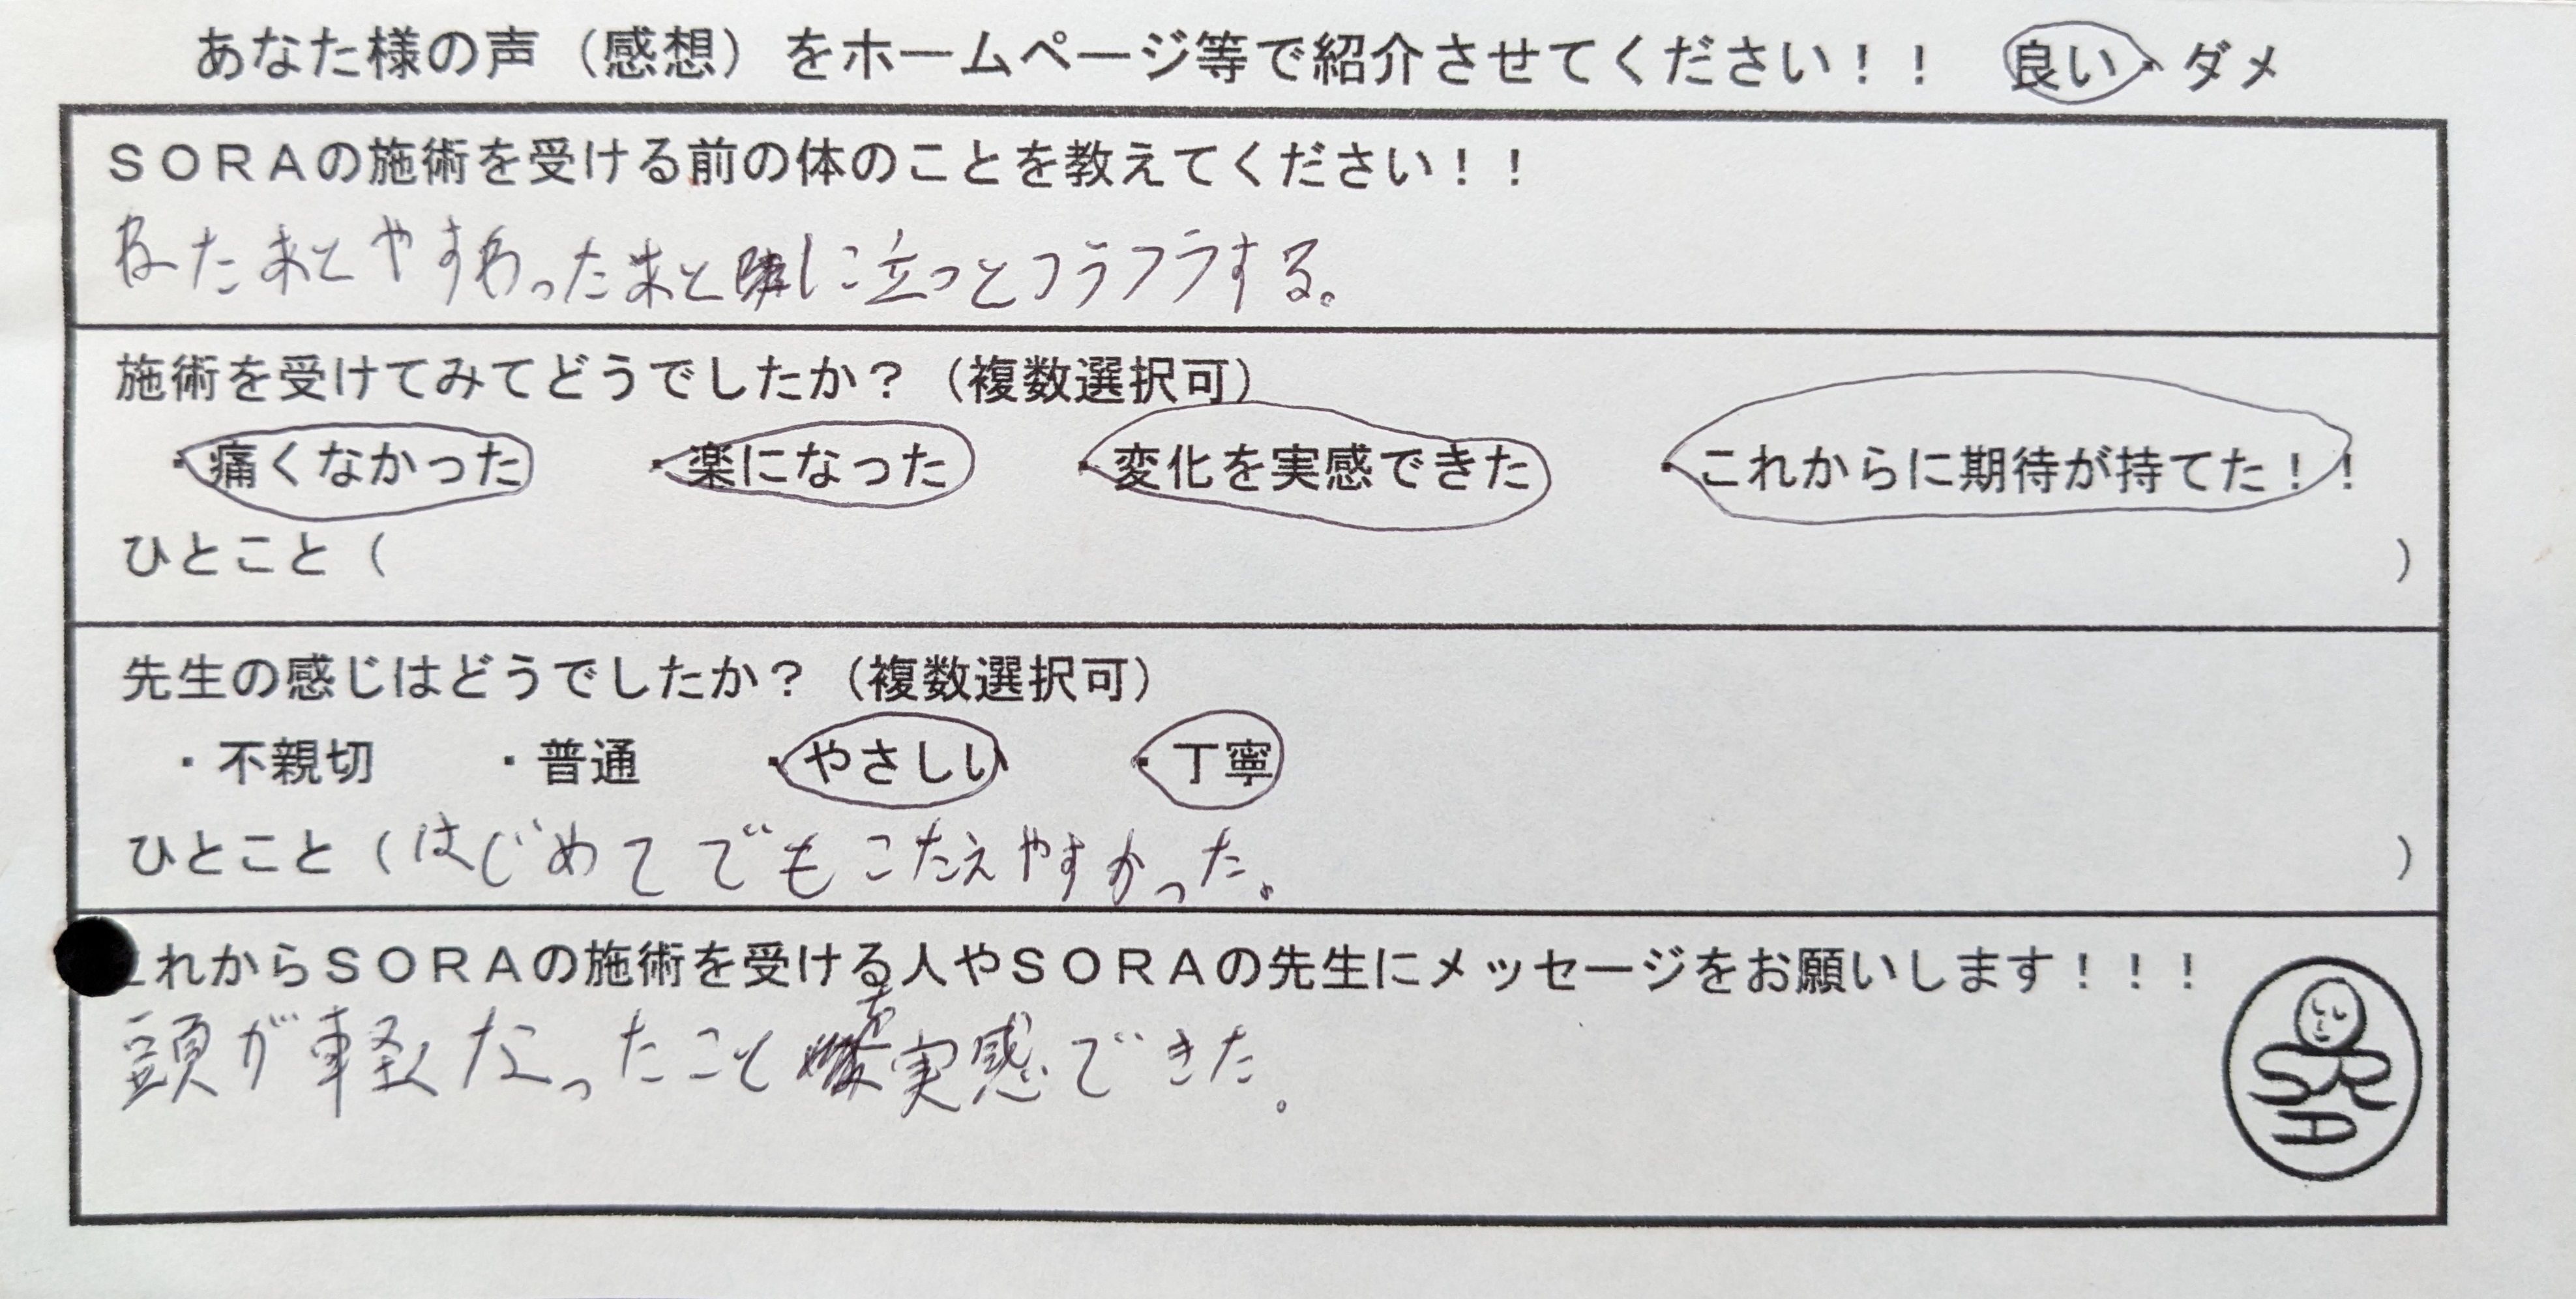 あなた様の声（感想）をホームページ等で紹介させてください！！　良い・ダメ
ＳＯＲＡの施術を受ける前の体のことを教えてください！！
ねたあとやすわったあと に立っとフラフラする。
施術を受けてみてどうでしたか？（複数選択可）
・痛くなかった　・楽になった　・変化を実感できた　・これからに期待が持てた！！
ひとこと（　）
先生の感じはどうでしたか？（複数選択可）
・不親切　・普通　・やさしい　・丁寧
ひとこと（はじめてでもこたえやすかった。）
れからＳＯＲＡの施術を受ける人やＳＯＲＡの先生にメッセージをお願いします！！！
頭が軽くなったことを実感できた。